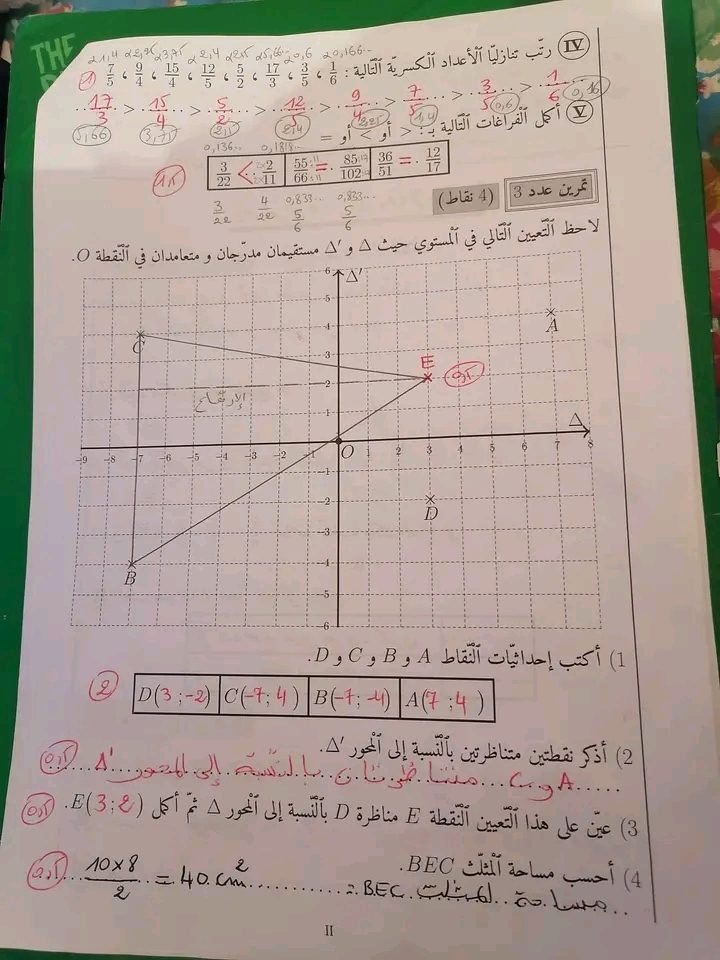 THE
IV رتّب تنازليّا الأعداد الكسريّة التّالية : 1/6 ، 3/5 ، 17/3 ، 5/2 ، 12/5 ، 15/4 ، 9/4 ، 7/5
1
17/3 > 15/4 > 5/2 > 12/5 > 9/4 > 7/5 > 3/5 > 1/6
5,66 3,75 2,5 2,4 2,25 1,4 0,6 0,16
V أكمل الفراغات التّالية بـ : < أو > أو =
0,136.. 0,1818..
1,5
3/22 < 2/11 55/66 = 85/102 36/51 = 12/17
3/22 4/22 0,833.. 0,833..
5/6 5/6
تمرين عدد 3 (4 نقاط)
لاحظ التّعيين التّالي في المستوي حيث Δ و Δ' مستقيمان مدرّجان و متعامدان في النّقطة O.
6 Δ'
4 A
C
3 E 0,5
2
الإرتفاع
1
Δ
-9 -8 -7 -6 -5 -4 -3 -2 -1 O 1 2 3 4 5 6 7 8
-1
-2 D
-3
-4 B
-5
-6
1) أكتب إحداثيّات النّقاط A و B و C و D.
2 D(3 ;-2) C(-7; 4 ) B(-7; -4) A(7 ;4 )
2) أذكر نقطتين متناظرتين بالنّسبة إلى المحور Δ'.
A و C متناظرتان بالنسبة إلى المحور Δ' 0,5
3) عيّن على هذا التّعيين النّقطة E مناظرة D بالنّسبة إلى المحور Δ ثمّ أكمل E(3;2). 0,5
4) أحسب مساحة المثلّث BEC.
مساحة المثلث BEC = 10×8/2 = 40 cm²
II